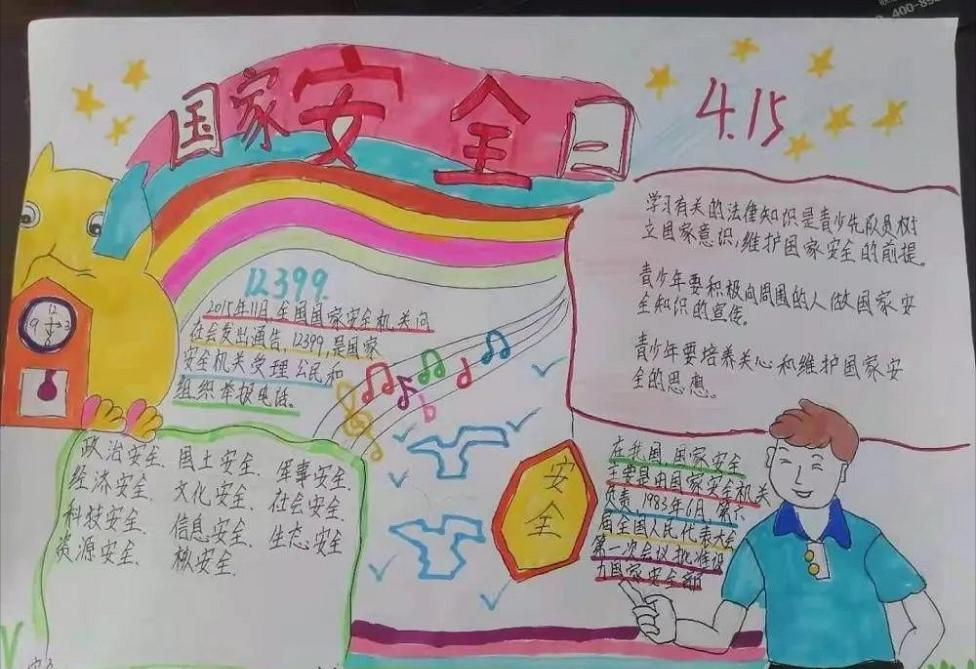 400-8
国家安全日
4.15
12399
2015年11月,全国国家安全机关向
社会发出通告,12399,是国家
安全机关受理公民和
组织举报电话。
12
9 3
6
学习有关的法律知识是青少先队员树
立国家意识,维护国家安全的前提。
青少年要积极向周围的人做国家安
全知识的宣传。
青少年要培养关心和维护国家安
全的思想。
政治安全、国土安全、军事安全、
经济安全、文化安全、社会安全、
科技安全、信息安全、生态安全
资源安全、核安全、
安
全
在我国国家安全
主要是由国家安全机关
负责,1983年6月,第六
届全国人民代表大会
第一次会议批准设
为国家安全部
安全